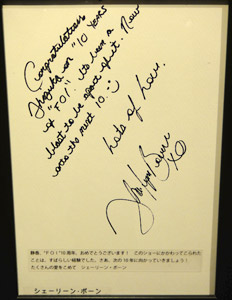 Congratulations
Shizuka on "10 YEARS
of "FOI! Its been a
blast to be apart of it. Now
onto the next 10. :)
Lots of love,
xo
静香、"F O I "10周年、おめでとうございます! このショーにかかわってこられた
ことは、すばらしい経験でした。さあ、次の10年に向かっていきましょう!
たくさんの愛をこめて シェーリーン・ボーン
シェーリーン・ボーン